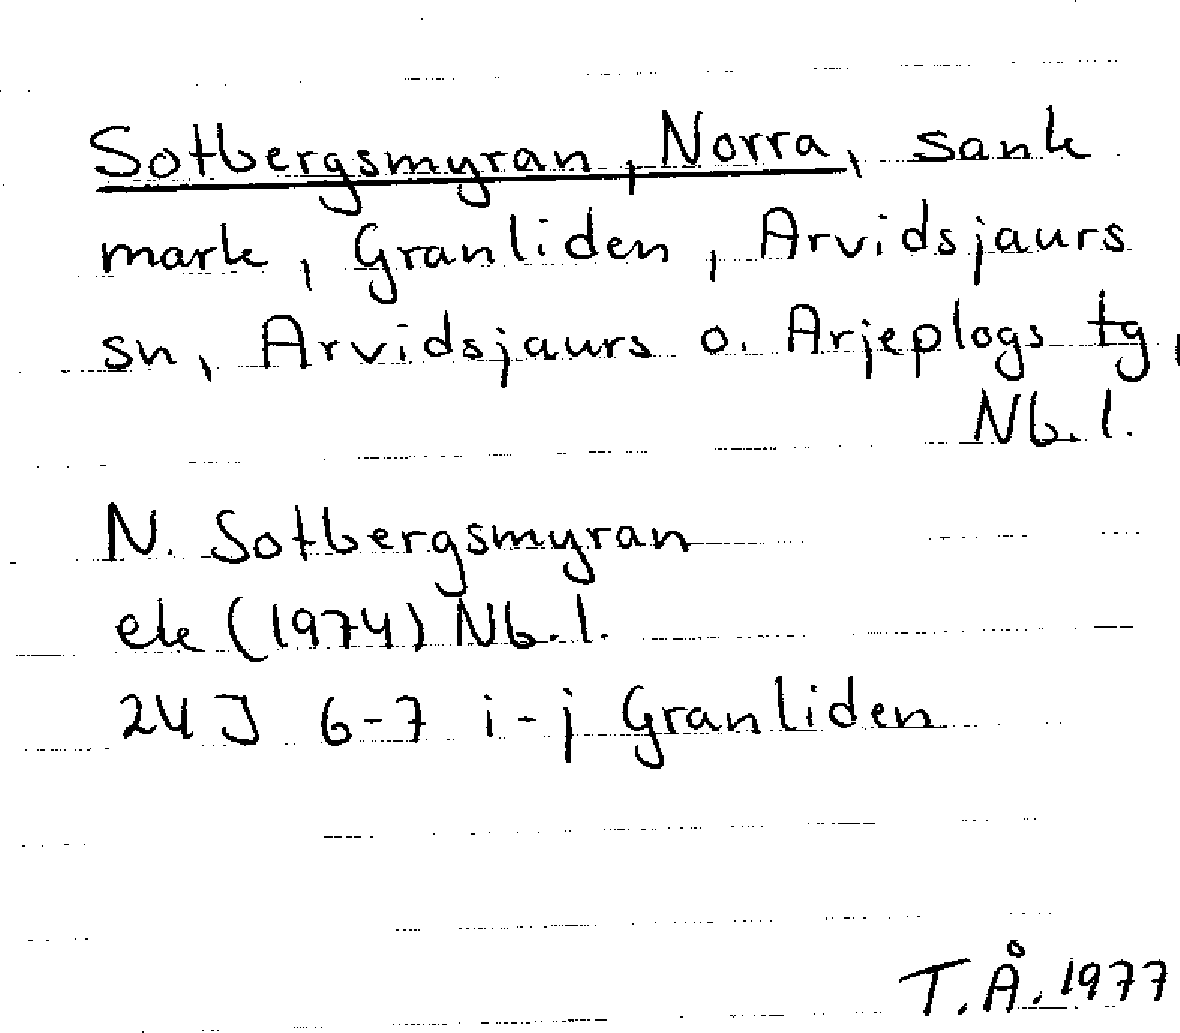 Sotbergsmyran, Norra, sank
mark, Granliden, Arvidsjaurs
sn, Arvidsjaurs o. Arjeplogs tg,
Nb. l.
N. Sotbergsmyran
ek (1974) Nb. l.
24J 6-7 i-j Granliden
T.Å. 1977